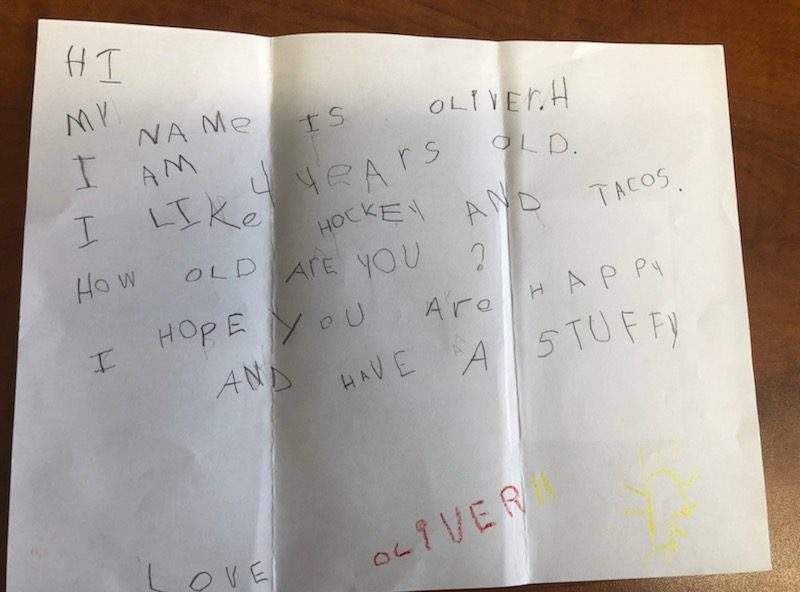 HI
MY NAMe IS OLIVEr.H
I AM 4 YeArS OLD.
I LIKe HOCKEY AND TACOS.
HOW OLD ArE YOU ?
I HOPE YOU Are HAPPY
AND HAVE A STUFFY
LOVE OLIVER H